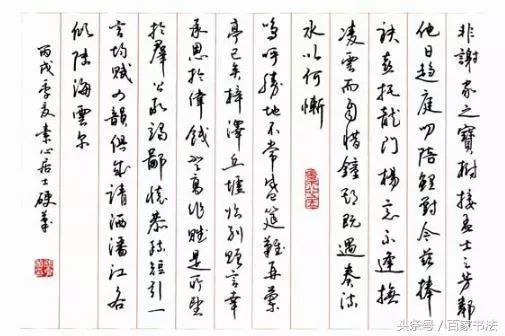 非謝家之寶樹接孟士之芳鄰
他日趨庭叨陪鯉對今茲捧
袂喜托龍門楊意不逢撫
凌雲而自惜鍾期既遇奏流
水以何慚
嗚呼勝地不常盛筵難再蘭
亭已矣梓澤丘墟臨別贈言幸
承恩於偉餞登高作賦是所望
於群公敢竭鄙懷恭疏短引一
言均賦四韻俱成請洒潘江各
傾陸海雲尔
丙戌季夏素心居士硬筆
头条号/百家书法